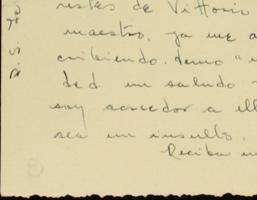 restes de Vittorio
maestro, ya me a
cribiendo. demo "
ded un saludo
soy acreedor a ell
sea un insulto.
Reciba un